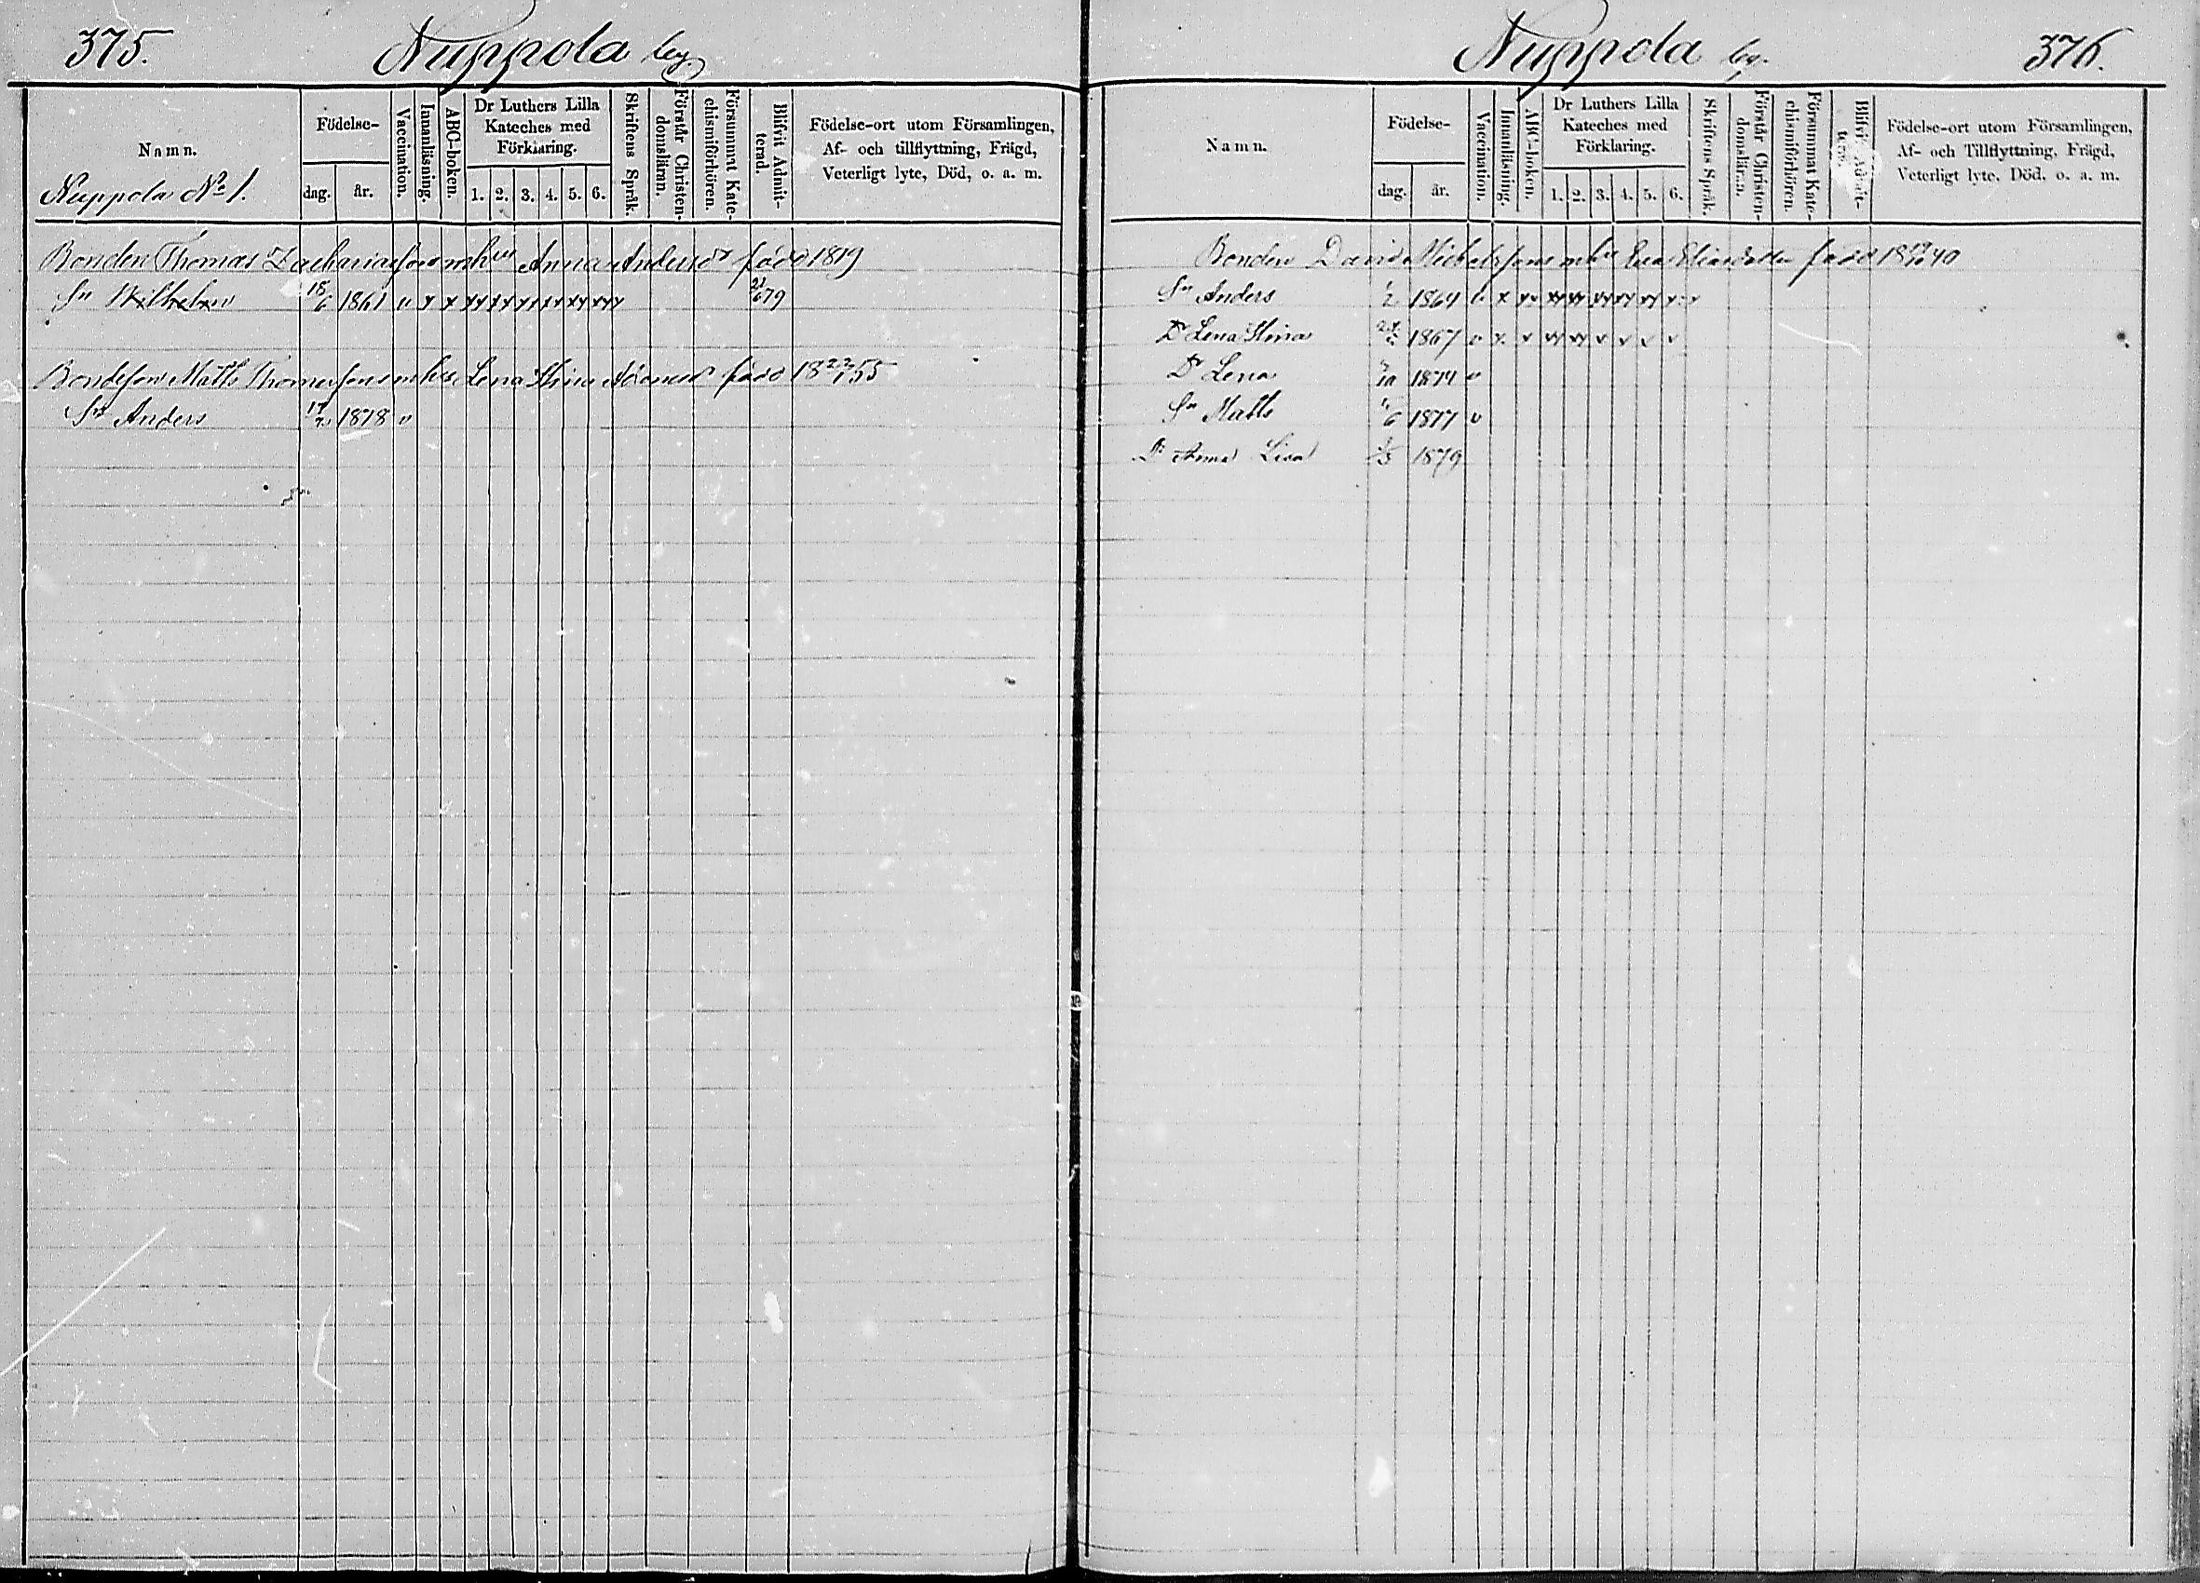 375. Nuppola by.
Namn.
Nuppola No 1.
Födelse-
dag. år.
Vaccination.
Innanläsning.
ABC-boken.
Dr Luthers Lilla
Kateches med
Förklaring.
1. 2. 3. 4. 5. 6.
Skriftens Språk.
Förstår Christen-
domsläran.
Försummat Kate-
chismiförhören.
Blifvit Admit-
terad.
Födelse-ort utom Församlingen,
Af- och tillflyttning, Frägd,
Veterligt lyte, Död, o. a. m.
Bonden Thomas Zachariasson m hu Anna Andersdr född 1819
Sn Wilhelm 18/6 1861 v x x xx xx xx xx xx xxx 21/6 79
Bondeson Matts Thomasson m hu Lena Stina född 18 22/7 55
Sn Anders 1878 v
Nuppola by. 376.
Namn.
Födelse-
dag. år.
Vaccination.
Innanläsning.
ABC-boken.
Dr Luthers Lilla
Kateches med
Förklaring.
1. 2. 3. 4. 5. 6.
Skriftens Språk.
Förstår Christen-
domsläran.
Försummat Kate-
chismiförhören.
Blifvit Admit-
terad.
Födelse-ort utom Församlingen,
Af- och Tillflyttning, Frägd,
Veterligt lyte, Död, o. a. m.
Bonden David Michelsson m hu Eva Eliasdotter född 1840
Sn Anders 1/2 1864 v x xx xx xx xx xx xx x
Dr Lena Stina 1867 v x x xx xx x x x x
Dr Lena 1874 v
Sn Matts 1/6 1877 v
Dr Anna Lisa 1879